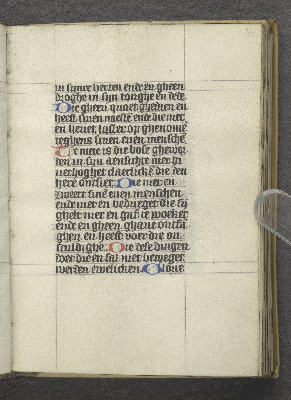 in synre herten ende en gheen
droghe in syn tonghe en dede
Die gheen quaet ghedaen en
heeft sinen naesten ende die niet
en heuet laster op ghenomē
teghens sinen euen mensche
Te niete is die bose ghewor
den in syn aensichte mer hi
verhoghet daerliken die den
here ontsiet Die niet en
zweert sinē euen menschen
ende niet en bedrieget die sy
ghelt niet en gaf te woeker
ende en gheen ghaue ontfā
ghen en heeft voer die on
sculdighe Die dese dingen
doet die en sal niet beweget
werden ewelicken Gloue